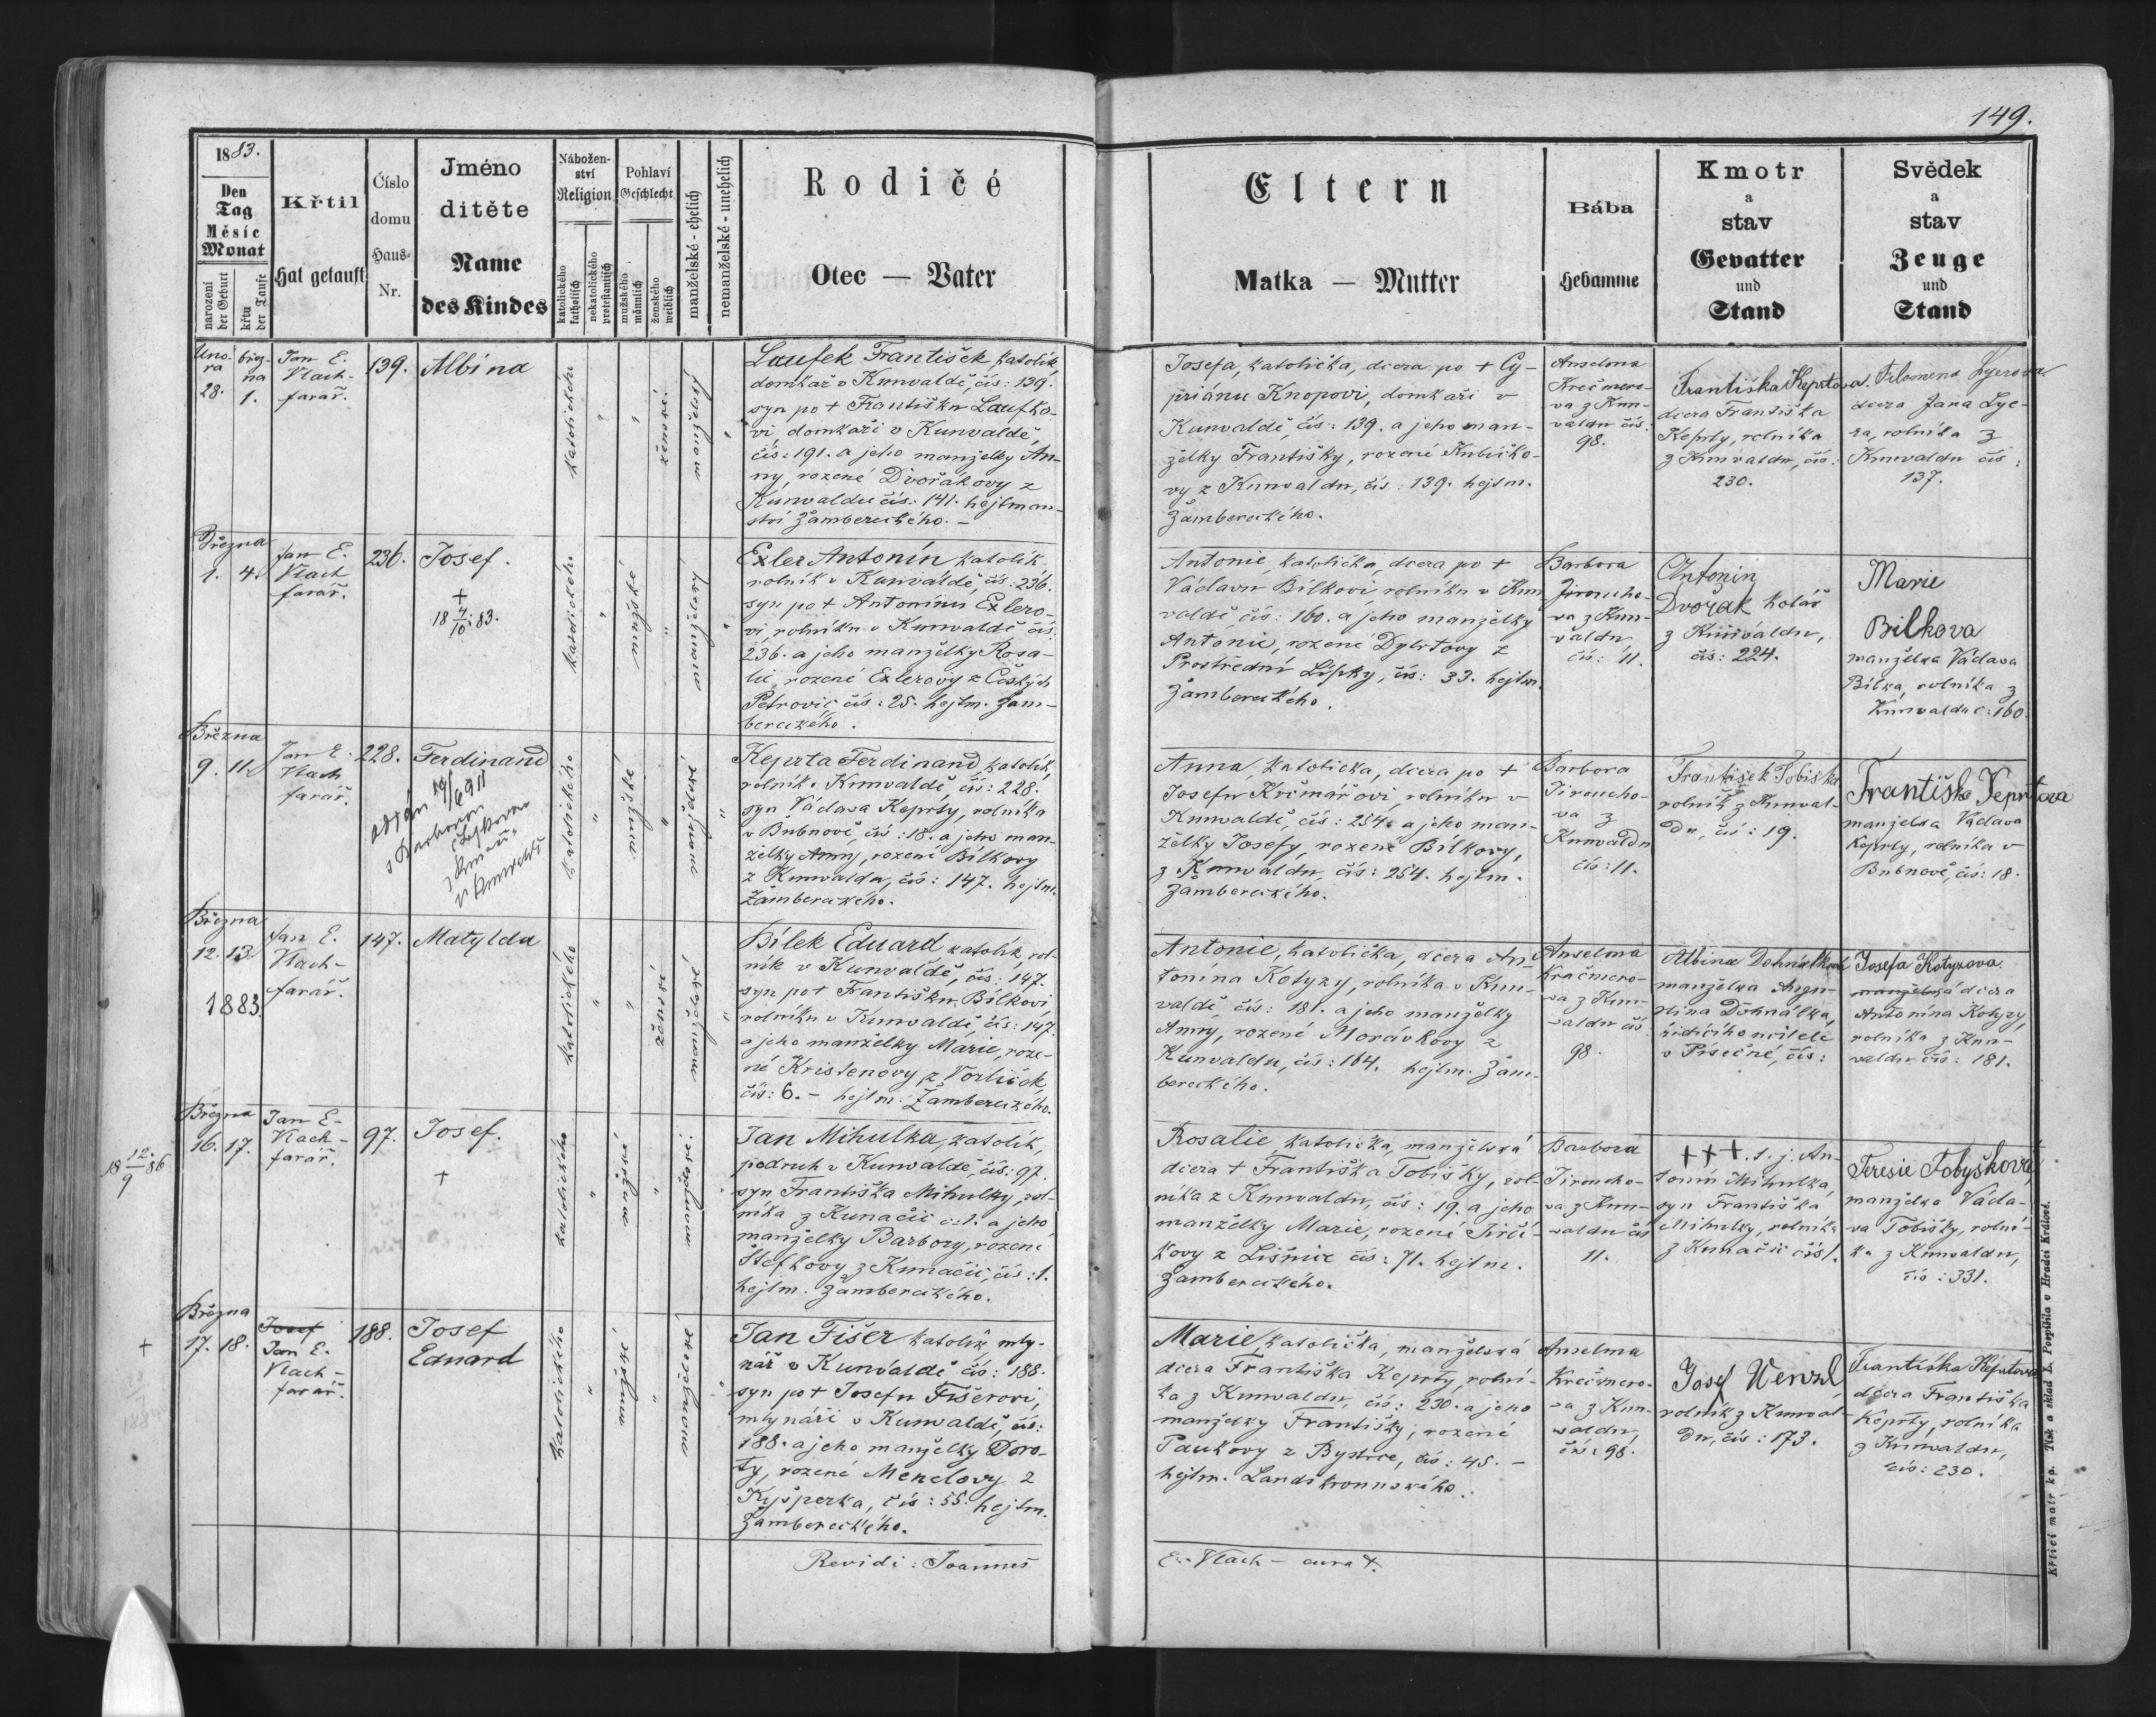 149.
1883.
Den
Tag
Měsíc
Monat
narození
der Geburt
křtu
der Taufe
Křtil
Hat getauft
Číslo
domu
Haus-
Nr.
Jméno
dítěte
Name
des Kindes
Nábožen-
ství
Religion
katolického
katholisch
nekatolického
protestantisch
Pohlaví
Geschlecht
mužského
männlich
ženského
weiblich
manželské - ehelich
nemanželské - unehelich
Rodičé
Otec — Vater
Eltern
Matka — Mutter
Bába
Hebamme
Kmotr
a
stav
Gevatter
und
Stand
Svědek
a
stav
Zeuge
und
Stand
Úno-
ra
28.
břez-
na
1.
Jan E.
Vlach-
farář.
139.
Albína
katolického
"
"
ženské.
manželský
"
Laufek František, katolík,
domkář v Kunvaldě, čís: 139.
syn po + Františku Laufko-
vi, domkáři v Kunvaldě,
čís: 191. a jeho manželky An-
ny, rozené Dvořákovy z
Kunvaldu čís: 141. hejtman-
ství Žambereckého. -
Josefa, katolička, dcera po + Cy-
priánu Knopovi, domkáři v
Kunvaldě, čís: 139. a jeho man-
želky Františky, rozené Kubíčko-
vy z Kunvaldu, čís: 139. hejtm.
Žambereckého.
Anselma
Krečmero-
va z Kun-
valdu čís:
98.
Františka Keprtova.
dcera Františka
Keprty, rolníka
z Kunvaldu, čís:
230.
Filomena Lyerova
dcera Jana Lye-
ra, rolníka z
Kunvaldu čís:
137.
Března
1. 4.
Jan E.
Vlach
farář.
236.
Josef.
+
18 4/10 83.
katolického
"
mužské
"
manželský
"
Exler Antonín katolík
rolník v Kunvaldě, čís: 236.
syn po + Antonínu Exlero-
vi, rolníku v Kunvaldě čís:
236. a jeho manželky Rosa-
lie, rozené Exlerovy z Českých
Petrovic, čís: 25. hejtm. Žam-
bereckého.
Antonie, katolička, dcera po +
Václavu Bílkovi, rolníku v Kun-
valdě, čís: 160. a jeho manželky
Antonie, rozené Dytrtovy z
Prostřední Lipky, čís: 33. hejtm.
Žambereckého.
Barbora
Jirouche-
va z Kun-
valdu
čís: 11.
Antonin
Dvořak kolář
z Kunvaldu,
čís: 224.
Marie
Bilkova
manželka Václava
Bílka, rolníka z
Kunvaldu č: 160.
Března
9. 11.
Jan E.
Vlach
farář.
228.
Ferdinand
oddán
s Barborou
v Kunvaldě
katolického
"
mužské
"
manželské
"
Keprta Ferdinand, katolík,
rolník v Kunvaldě, čís: 228.
syn Václava Keprty, rolníka
v Bubnově, čís: 18. a jeho man-
želky Anny, rozené Bílkovy
z Kunvaldu, čís: 147. hejtm.
Žambereckého.
Anna, katolička, dcera po +
Josefu Krčmářovi, rolníku v
Kunvaldě, čís: 254. a jeho man-
želky Josefy, rozené Bílkovy,
z Kunvaldu, čís: 254. hejtm.
Žambereckého.
Barbora
Jiroucho-
va z
Kunvaldu
čís: 11.
František Tobiska
rolník z Kunval-
du, čís: 19.
Františka Keprtova
manželka Václava
Keprty, rolníka v
Bubnově, čís: 18.
Března
12. 13.
1883.
Jan E.
Vlach-
farář.
147.
Matylda
katolického
"
"
ženské
manželské
"
Bílek Eduard katolík, rol-
ník v Kunvaldě, čís: 147.
syn po + Františku Bílkovi
rolníku v Kunvaldě, čís: 147.
a jeho manželky Marie, roze-
né Kristenovy z Vorliček
čís: 6. - hejtm. Žambereckého.
Antonie, katolička, dcera An-
tonína Kotyzy, rolníka v Kun-
valdě, čís: 181. a jeho manželky
Anny, rozené Morávkovy z
Kunvaldu, čís: 164. hejtm. Žam-
bereckého.
Anselma
Kračmero-
va z Kun-
valdu čís:
98.
Albina Dohnálkova
manželka Augu-
stina Dohnálka,
řídícího učitele
v Písečné, čís:
Josefa Kotyzova.
manželká dcera
Antonína Kotyzy,
rolníka z Kun-
valdu čís: 181.
18 12./9 86
Března
16. 17.
Jan E.
Vlach-
farář.
97.
Josef.
+
katolického
"
mužské
"
manželské.
"
Jan Mihulka, katolík,
podruh v Kunvaldě, čís: 97.
syn Františka Mihulky, rol-
níka z Kunačic č: 1. a jeho
manželky Barbory, rozené
Štefkovy z Kunačic, čís: 1.
hejtm. Žambereckého.
Rosalie katolička, manželská
dcera + Františka Tobišky, rol-
níka z Kunvaldu, čís: 19. a jeho
manželky Marie, rozené Jirčí-
kovy z Lišnice čís: 71. hejtm.
Žambereckého.
Barbora
Jiroucho-
va z Kun-
valdu čís
11.
+++. t. j. An-
tonín Mihulka,
syn Františka
Mihulky, rolníka
z Kunačic čís 1.
Teresie Tobyškova,
manželka Václa-
va Tobišky, rolní-
ka z Kunvaldu,
čís: 331.
+
Března
17. 18.
Josef
Jan E.
Vlach-
farář.
188.
Josef
Eduard
katolického
"
mužské
"
manželské
"
Jan Fišer katolík, mly-
nář v Kunvaldě čís: 188.
syn po + Josefu Fišerovi,
mlynáři v Kunvaldě, čís:
188. a jeho manželky Doro-
ty, rozené Menclovy z
Kyšperka, čís: 55. hejtm.
Žambereckého.
Marie, katolička, manželská
dcera Františka Keprty, rolní-
ka z Kunvaldu, čís: 230. a jeho
manželky Františky, rozené
Paukovy z Bystrce, čís: 45. -
hejtm. Landskronnského.
Anselma
Krečmero-
va z Kun-
valdu,
čís: 98.
Josef Wenzl,
rolník z Kunval-
du, čís: 173.
Františka Keprtova
dcera Františka
Keprty, rolníka
z Kunvaldu,
čís: 230.
Revidi: Joannes
E. Vlach -
Křticí matr kp. Tisk a sklad L. Pospíšila v Hradci Králové.